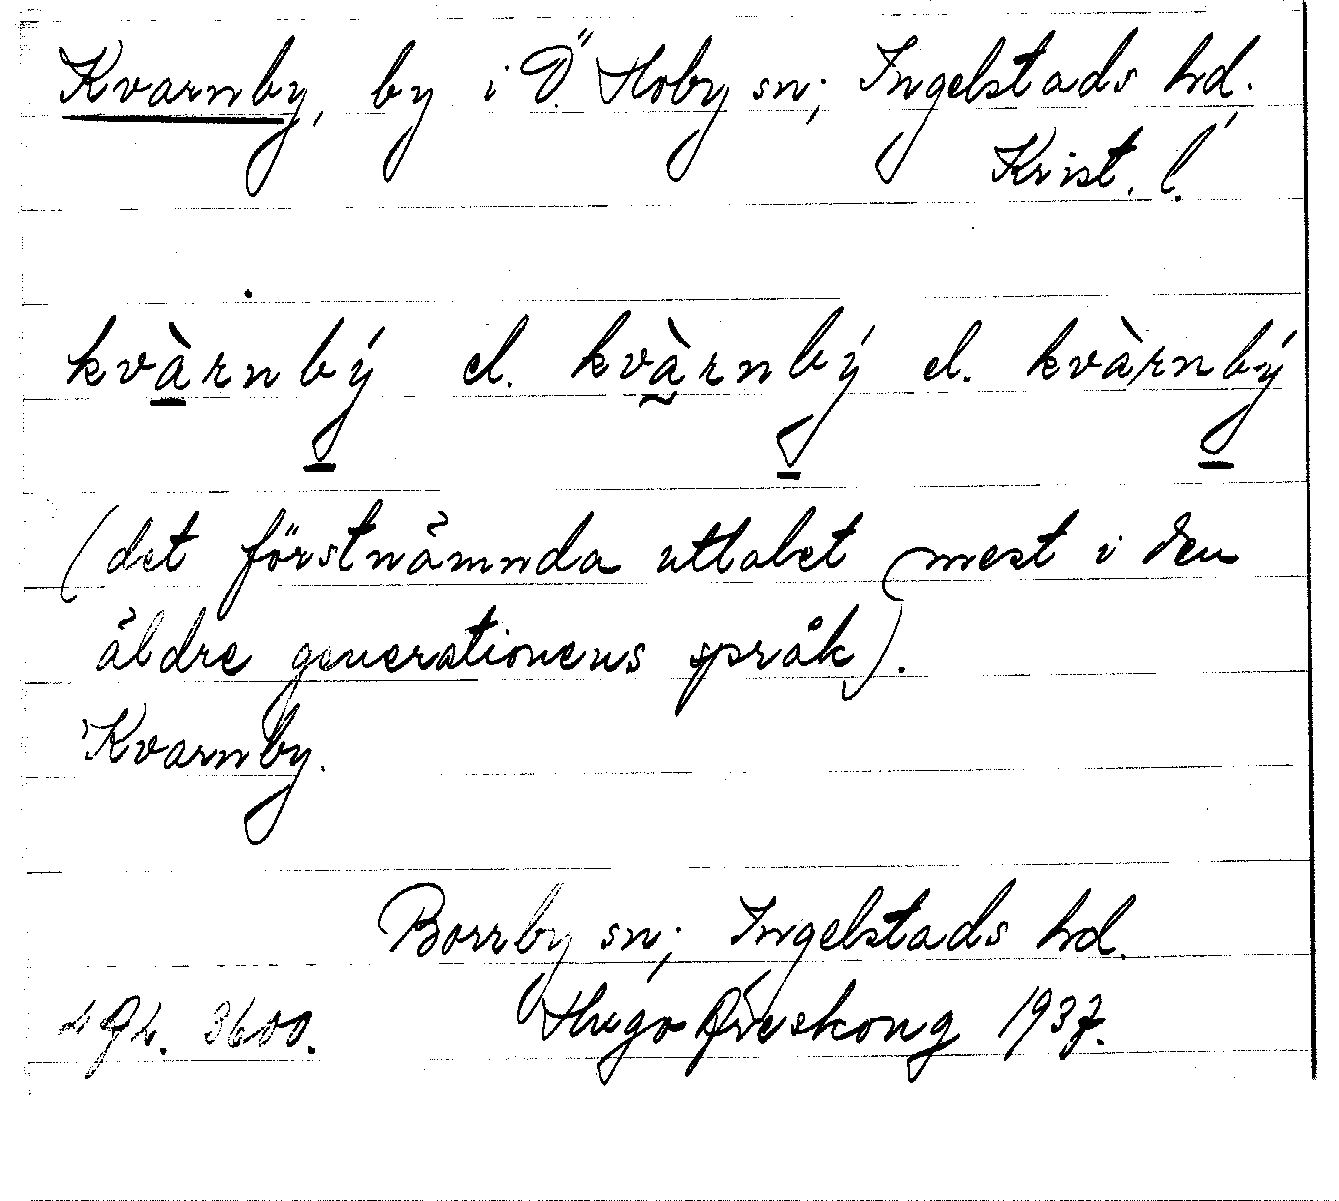 Kvarnby, by i Ö. Hoby sn; Ingelstads hd.
Krist. l.
kvàrnbý el. kvàrnbý el. kvàrnbý
(det förstnämnda uttalet mest i den
äldre generationens språk).
Kvarnby.
Borrby sn; Ingelstads hd.
3600. Hugo Areskoug 1937.